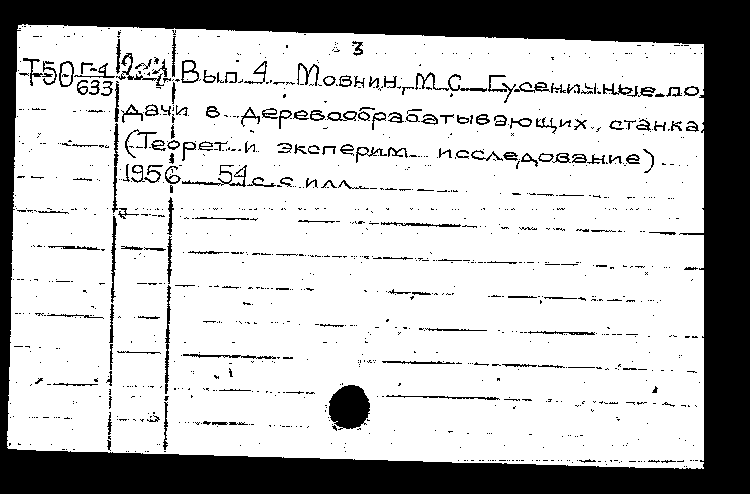 3
Т50 Г-4/633 Вып 4. Мовнин, М.С. Гусеничные по-
дачи в деревообрабатывающих станках
(Теорет. и эксперим. исследование)
1956. 54 с. с илл.